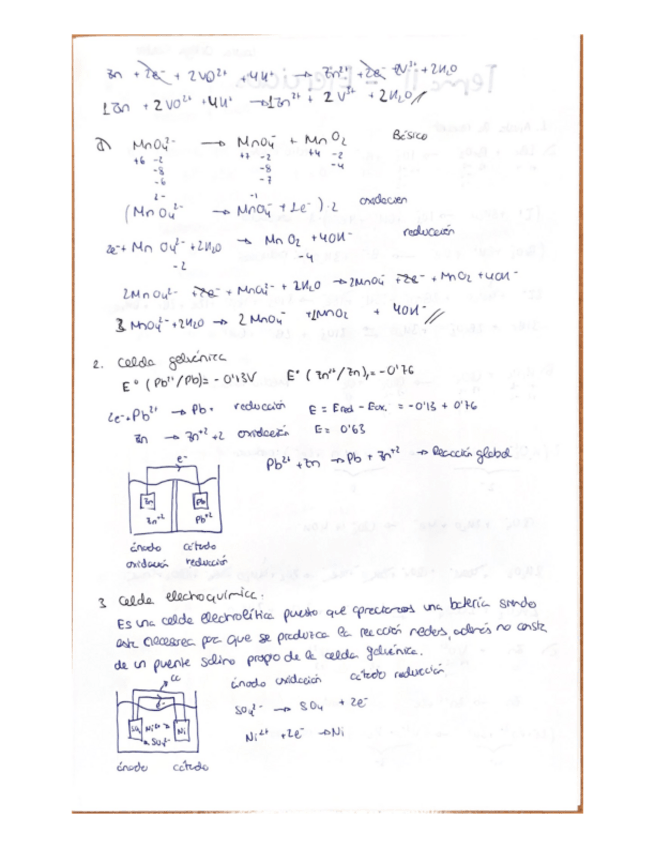 Zn + 2e⁻ + 2VO²⁺ + 4H⁺ → Zn²⁺ + 2e⁻ + 2V³⁺ + 2H₂O
1Zn + 2VO²⁺ + 4H⁺ → 1Zn²⁺ + 2V³⁺ + 2H₂O //
MnO₄²⁻ → MnO₄⁻ + MnO₂ Básico
+6 -2 +7 -2 +4 -2
-8 -8 -4
-6 -7
2- -1
(MnO₄²⁻ → MnO₄⁻ + 1e⁻)·2 oxidación
2e⁻ + MnO₄²⁻ + 2H₂O → MnO₂ + 4OH⁻ reducción
-2 -4
2MnO₄²⁻ + 2e⁻ + MnO₄²⁻ + 2H₂O → 2MnO₄⁻ + 2e⁻ + MnO₂ + 4OH⁻
3 MnO₄²⁻ + 2H₂O → 2MnO₄⁻ + 1MnO₂ + 4OH⁻ //
2. Celda galvánica
E° (Pb²⁺/Pb) = -0'13V E° (Zn²⁺/Zn) = -0'76
2e⁻ + Pb²⁺ → Pb reducción E = Ered - Eox = -0'13 + 0'76
Zn → Zn⁺² + 2 oxidación E = 0'63
Pb²⁺ + Zn → Pb + Zn⁺² → Reacción global
e⁻
Zn Pb
Zn⁺² Pb⁺²
ánodo cátodo
oxidación reducción
3 Celda electroquímica.
Es una celda electrolítica puesto que apreciamos una batería siendo
esta necesarea para que se produzca la reacción redox, además no consta
de un puente salino propio de la celda galvánica.
cc ánodo oxidación cátodo reducción
e⁻
SO₄²⁻ → SO₄ + 2e⁻
Ni²⁺ Ni
SO₄²⁻
Ni²⁺ + 2e⁻ → Ni
ánodo cátodo